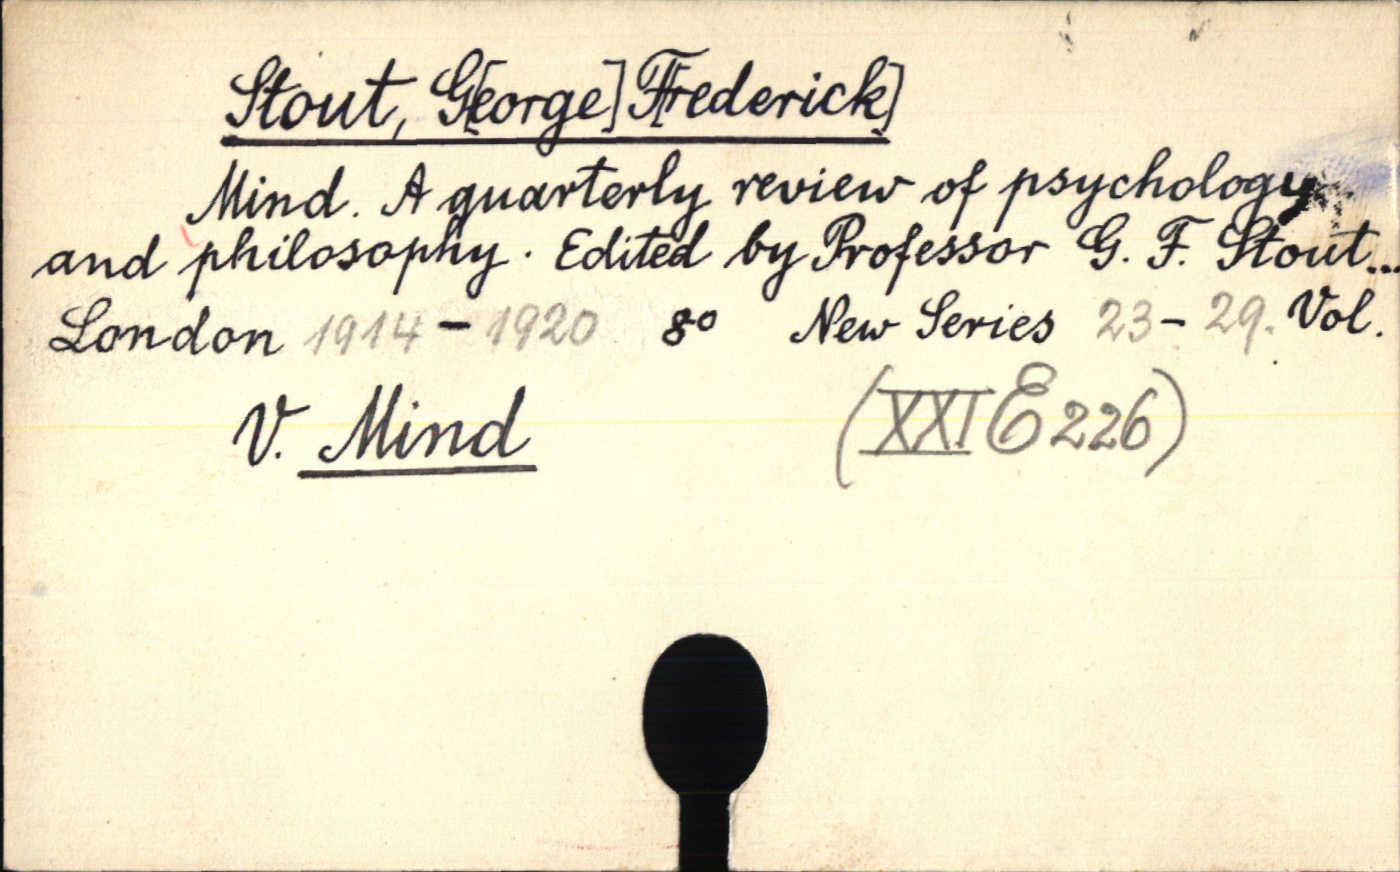 Stout, G[eorge] F[rederick]
Mind. A quarterly review of psychology
and philosophy. Edited by Professor G. F. Stout...
London 1914 - 1920 8° New Series 23 - 29. Vol.
V. Mind (XXI E 226)